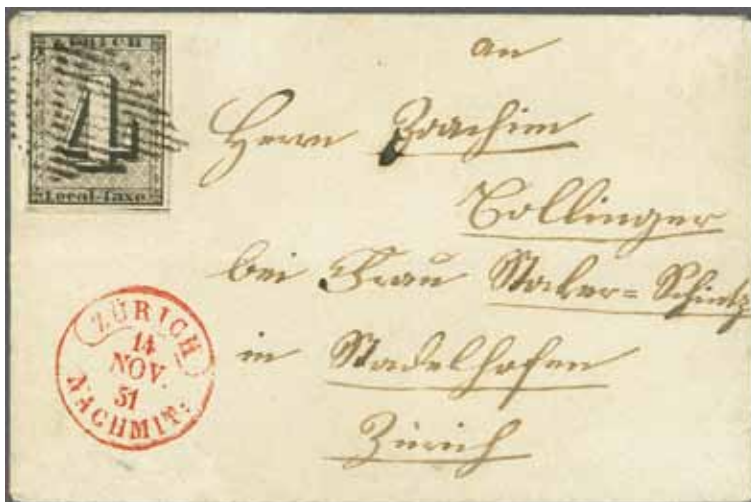 ZÜRICH
4
Local-Taxe
an
Herrn Joachim
Bollinger
bei Frau Stocker=Schinz
in Stadelhofen
Zürich
ZÜRICH
14
NOV.
51
NACHMIT: